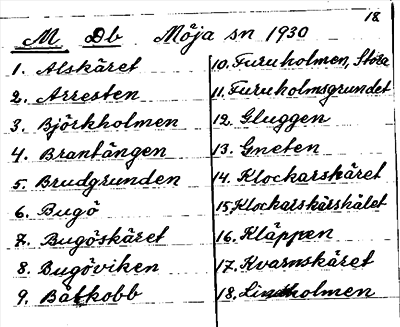 18.
M Db Möja sn 1930
1. Alskäret
2. Arresten
3. Björkholmen
4. Brantängen
5. Brudgrunden
6. Bugö
7. Bugöskäret
8. Bugöviken
9. Båtkobb
10. Furuholmen, Stora
11. Furuholmsgrundet
12. Gluggen
13. Gneten
14. Klockarskäret
15. Klockarskärshålet
16. Kläppen
17. Kvarnskäret
18. Lindholmen